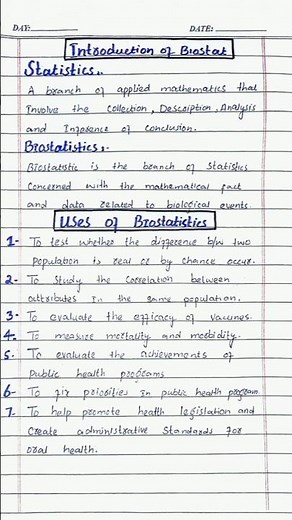 DAY: DATE:
Introduction of Biostat
Statistics:-
A branch of applied mathematics that
Involve the Collection, Description, Analysis
and Inference of Conclusion.
Biostatistics:-
Biostatistic is the branch of Statistics
Concerned with the mathematical fact
and data related to biological events.
Uses of Biostatistics
1- To test whether the difference b/w two
Population is real or by chance occur.
2- To Study the Correlation between
attributes in the same population.
3- To evaluate the efficacy of vaccines.
4- To measure mortality and morbidity.
5- To evaluate the achievements of
Public health programs
6- To fix priorities in public health program
7- To help promote health legislation and
Create administrative Standards For
oral health.